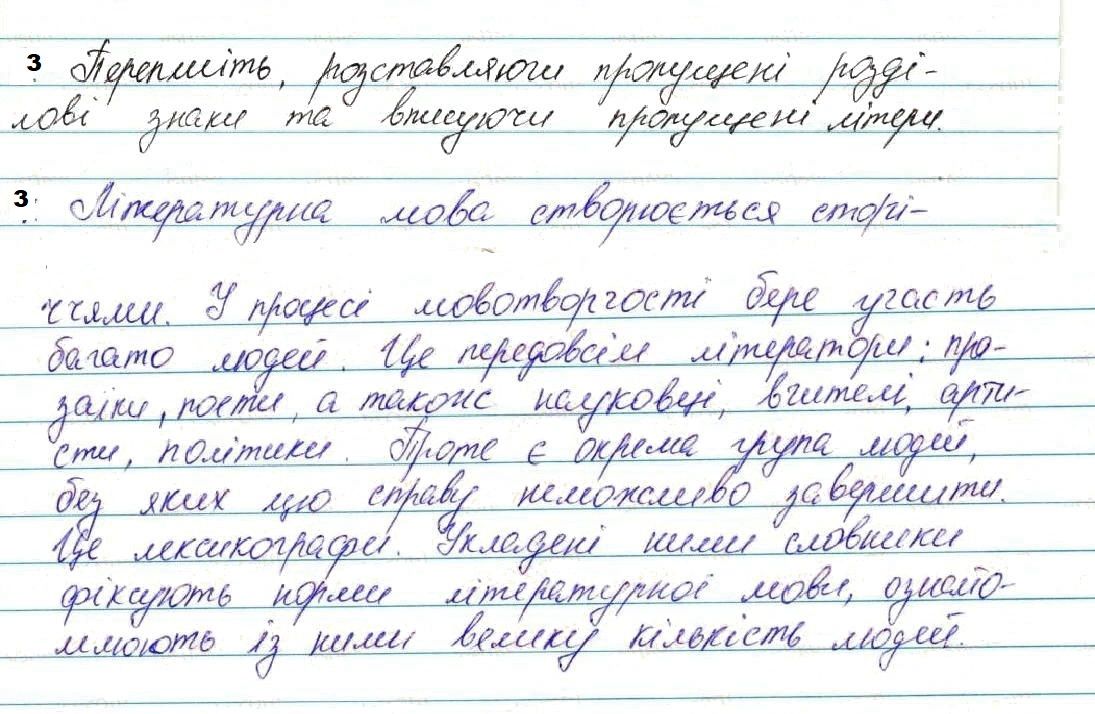 3 Перепишіть, розставляючи пропущені розді-
лові знаки та вписуючи пропущені літери.
3 Літературна мова створюється сторі-
ччями. У процесі мовотворчості бере участь
багато людей. Це передовсім літератори: про-
заїки, поети, а також науковці, вчителі, арти-
сти, політики. Проте є окрема група людей,
без яких цю справу неможливо завершити.
Це лексикографи. Укладені ними словники
фіксують норми літературної мови, ознайо-
млюють із ними велику кількість людей.